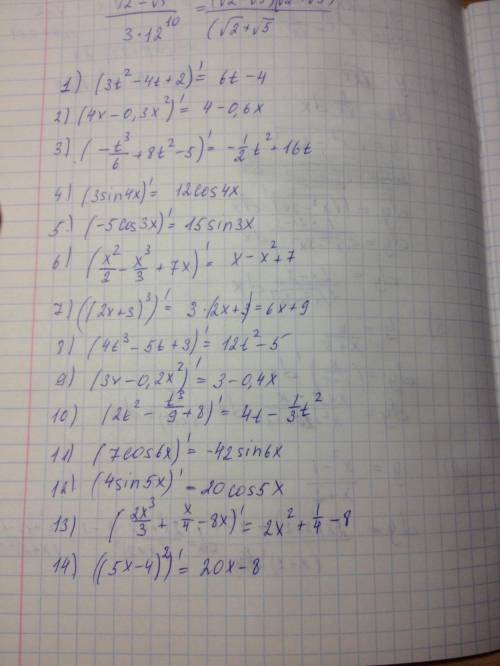 √2 - √5 / 3·12^10 = (√2 - √5)(√2 + √5) / (√2 + √5
1) (3t² - 4t + 2)' = 6t - 4
2) (4x - 0,3x²)' = 4 - 0,6x
3) (-t³/6 + 8t² - 5)' = -1/2 t² + 16t
4) (3sin4x)' = 12cos4x
5) (-5cos3x)' = 15sin3x
6) (x²/2 - x³/3 + 7x)' = x - x² + 7
7) ((2x+3)³)' = 3·(2x+3) = 6x+9
8) (4t³ - 5t + 3)' = 12t² - 5
9) (3x - 0,2x²)' = 3 - 0,4x
10) (2t² - t³/9 + 8)' = 4t - 1/3 t²
11) (7cos6x)' = -42sin6x
12) (4sin5x)' = 20cos5x
13) (2x³/3 + x/4 - 8x)' = 2x² + 1/4 - 8
14) ((5x-4)²)' = 20x - 8